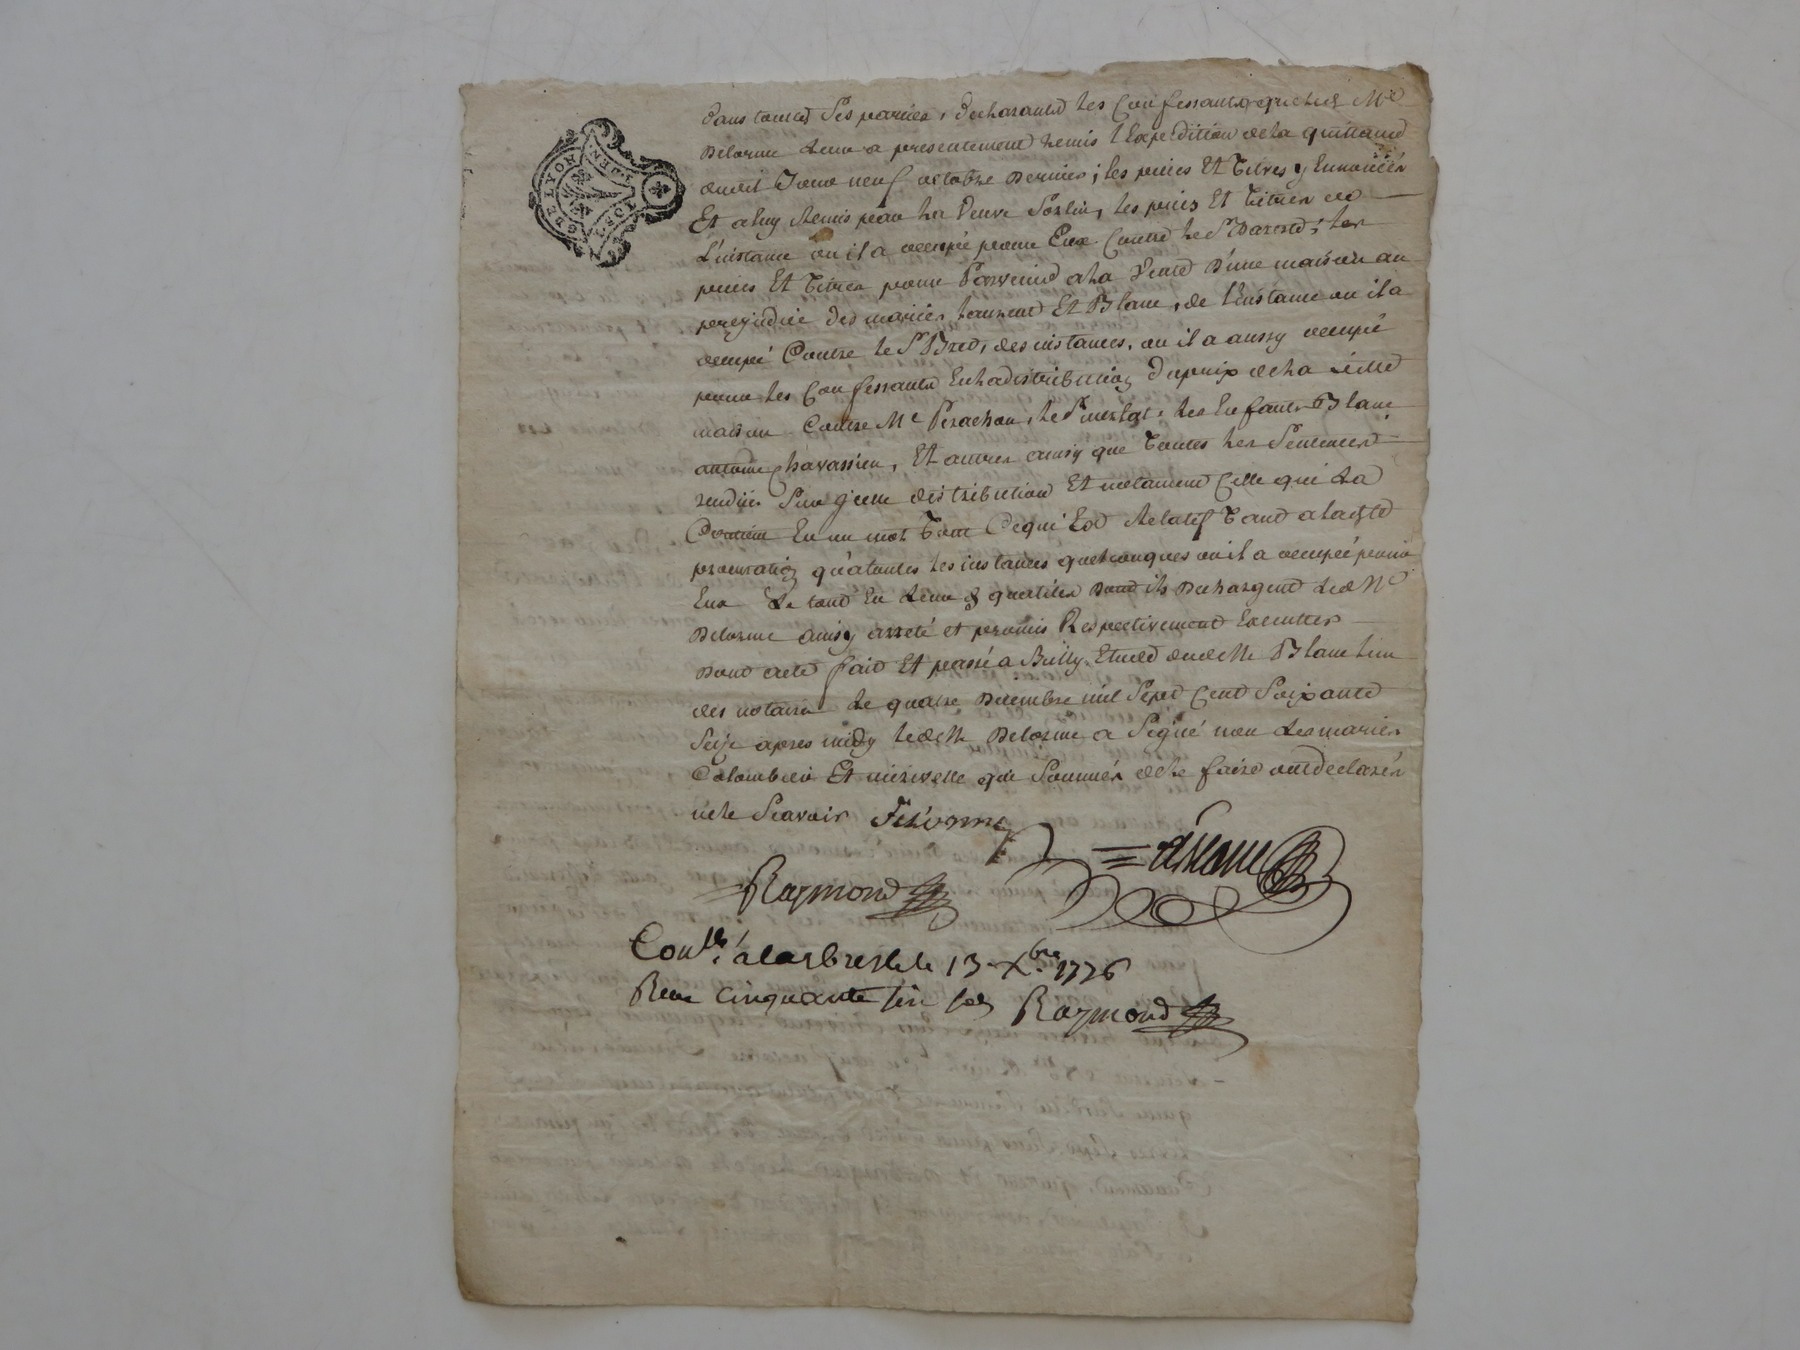 GEN. DE LYON
dans toutes ses parties, declarants les Confessants que led. Me
Delorme leur a presentement remis l'Expedition de la quittance
dudit Jour neuf octobre dernier; les pieces Et Titres y Ennoncés
Et a luy Remis par la Veuve Sorlin, les pieces Et titres de
L'instance ou il a occupée pour Eux Contre le Sr; les
pieces Et titres pour Parvenir a la Vente D'une maison au
prejudice des mariés Et Blanc, de l'instance ou il a
occupé Contre le Sr, des instances, ou il a aussy occupé
pour les Confessants En la distribution Du prix de la ditte
maison Contre Me Perachon, le Sr, les Enfants Blanc
antoine Chavassieu, Et autres ainsy que Toutes les Sentences
rendües Sur ycelle distribution Et notament Celle qui La
En un mot Tout Ce qui Est Relatif Tant a laditte
procuration qu'a toutes les instances quelconques ou il a occupée pour
Eux Le tout En Deux dont ils Dechargent led. Me
Delorme ainsy arreté et promis Respectivement Executter
Dont acte fait Et passé a Bully Etude dudt Me Blanc l'un
des notaires Le quatre Decembre mil Sept Cent Soixante
Seize apres midy ledt Me Delorme a Signé non Les mariés
Colombier Et qui Sommés de le faire ont declarés
ne le Scavoir Delorme
Blanc
Raymond
Conllé a larbresle le 13 Xbre 1776
Reçu cinquante six sols Raymond